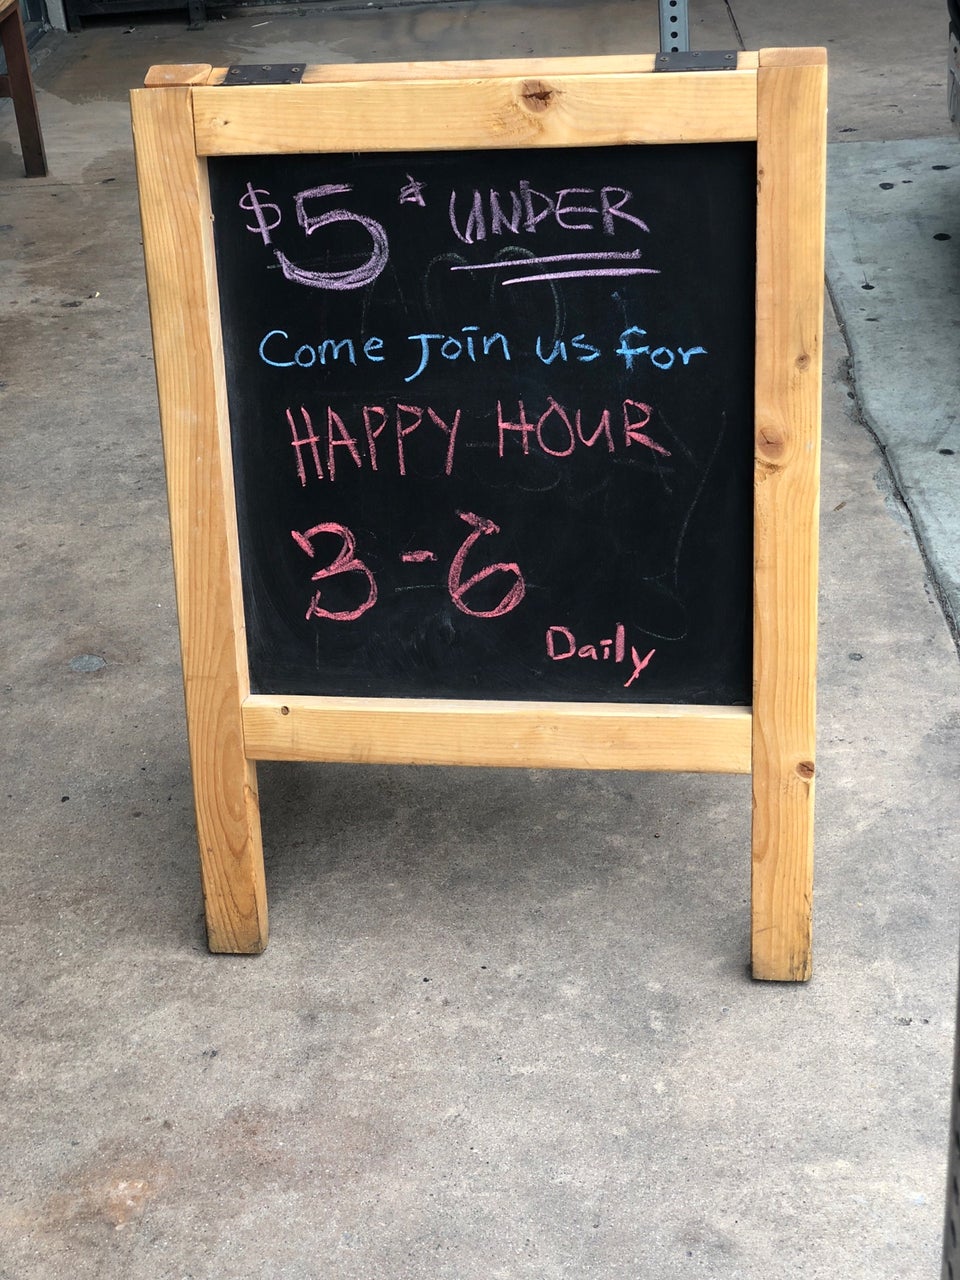 $5 & UNDER
Come Join us for
HAPPY HOUR
3-6
Daily